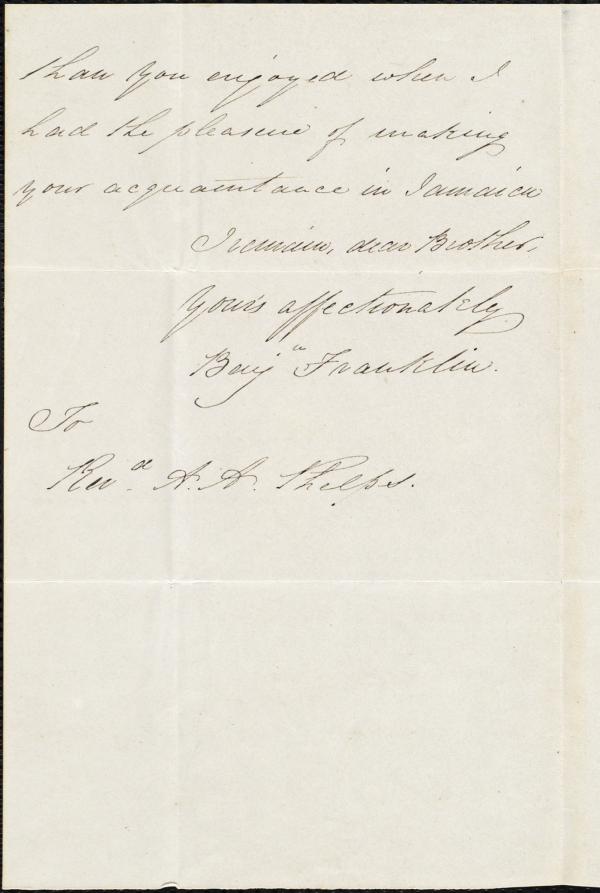 than you enjoyed when I
had the pleasure of making
your acquaintance in Jamaica
I remain, dear Brother,
Yours affectionately
Benjn Franklin.
To
Revd. A. A. Phelps.